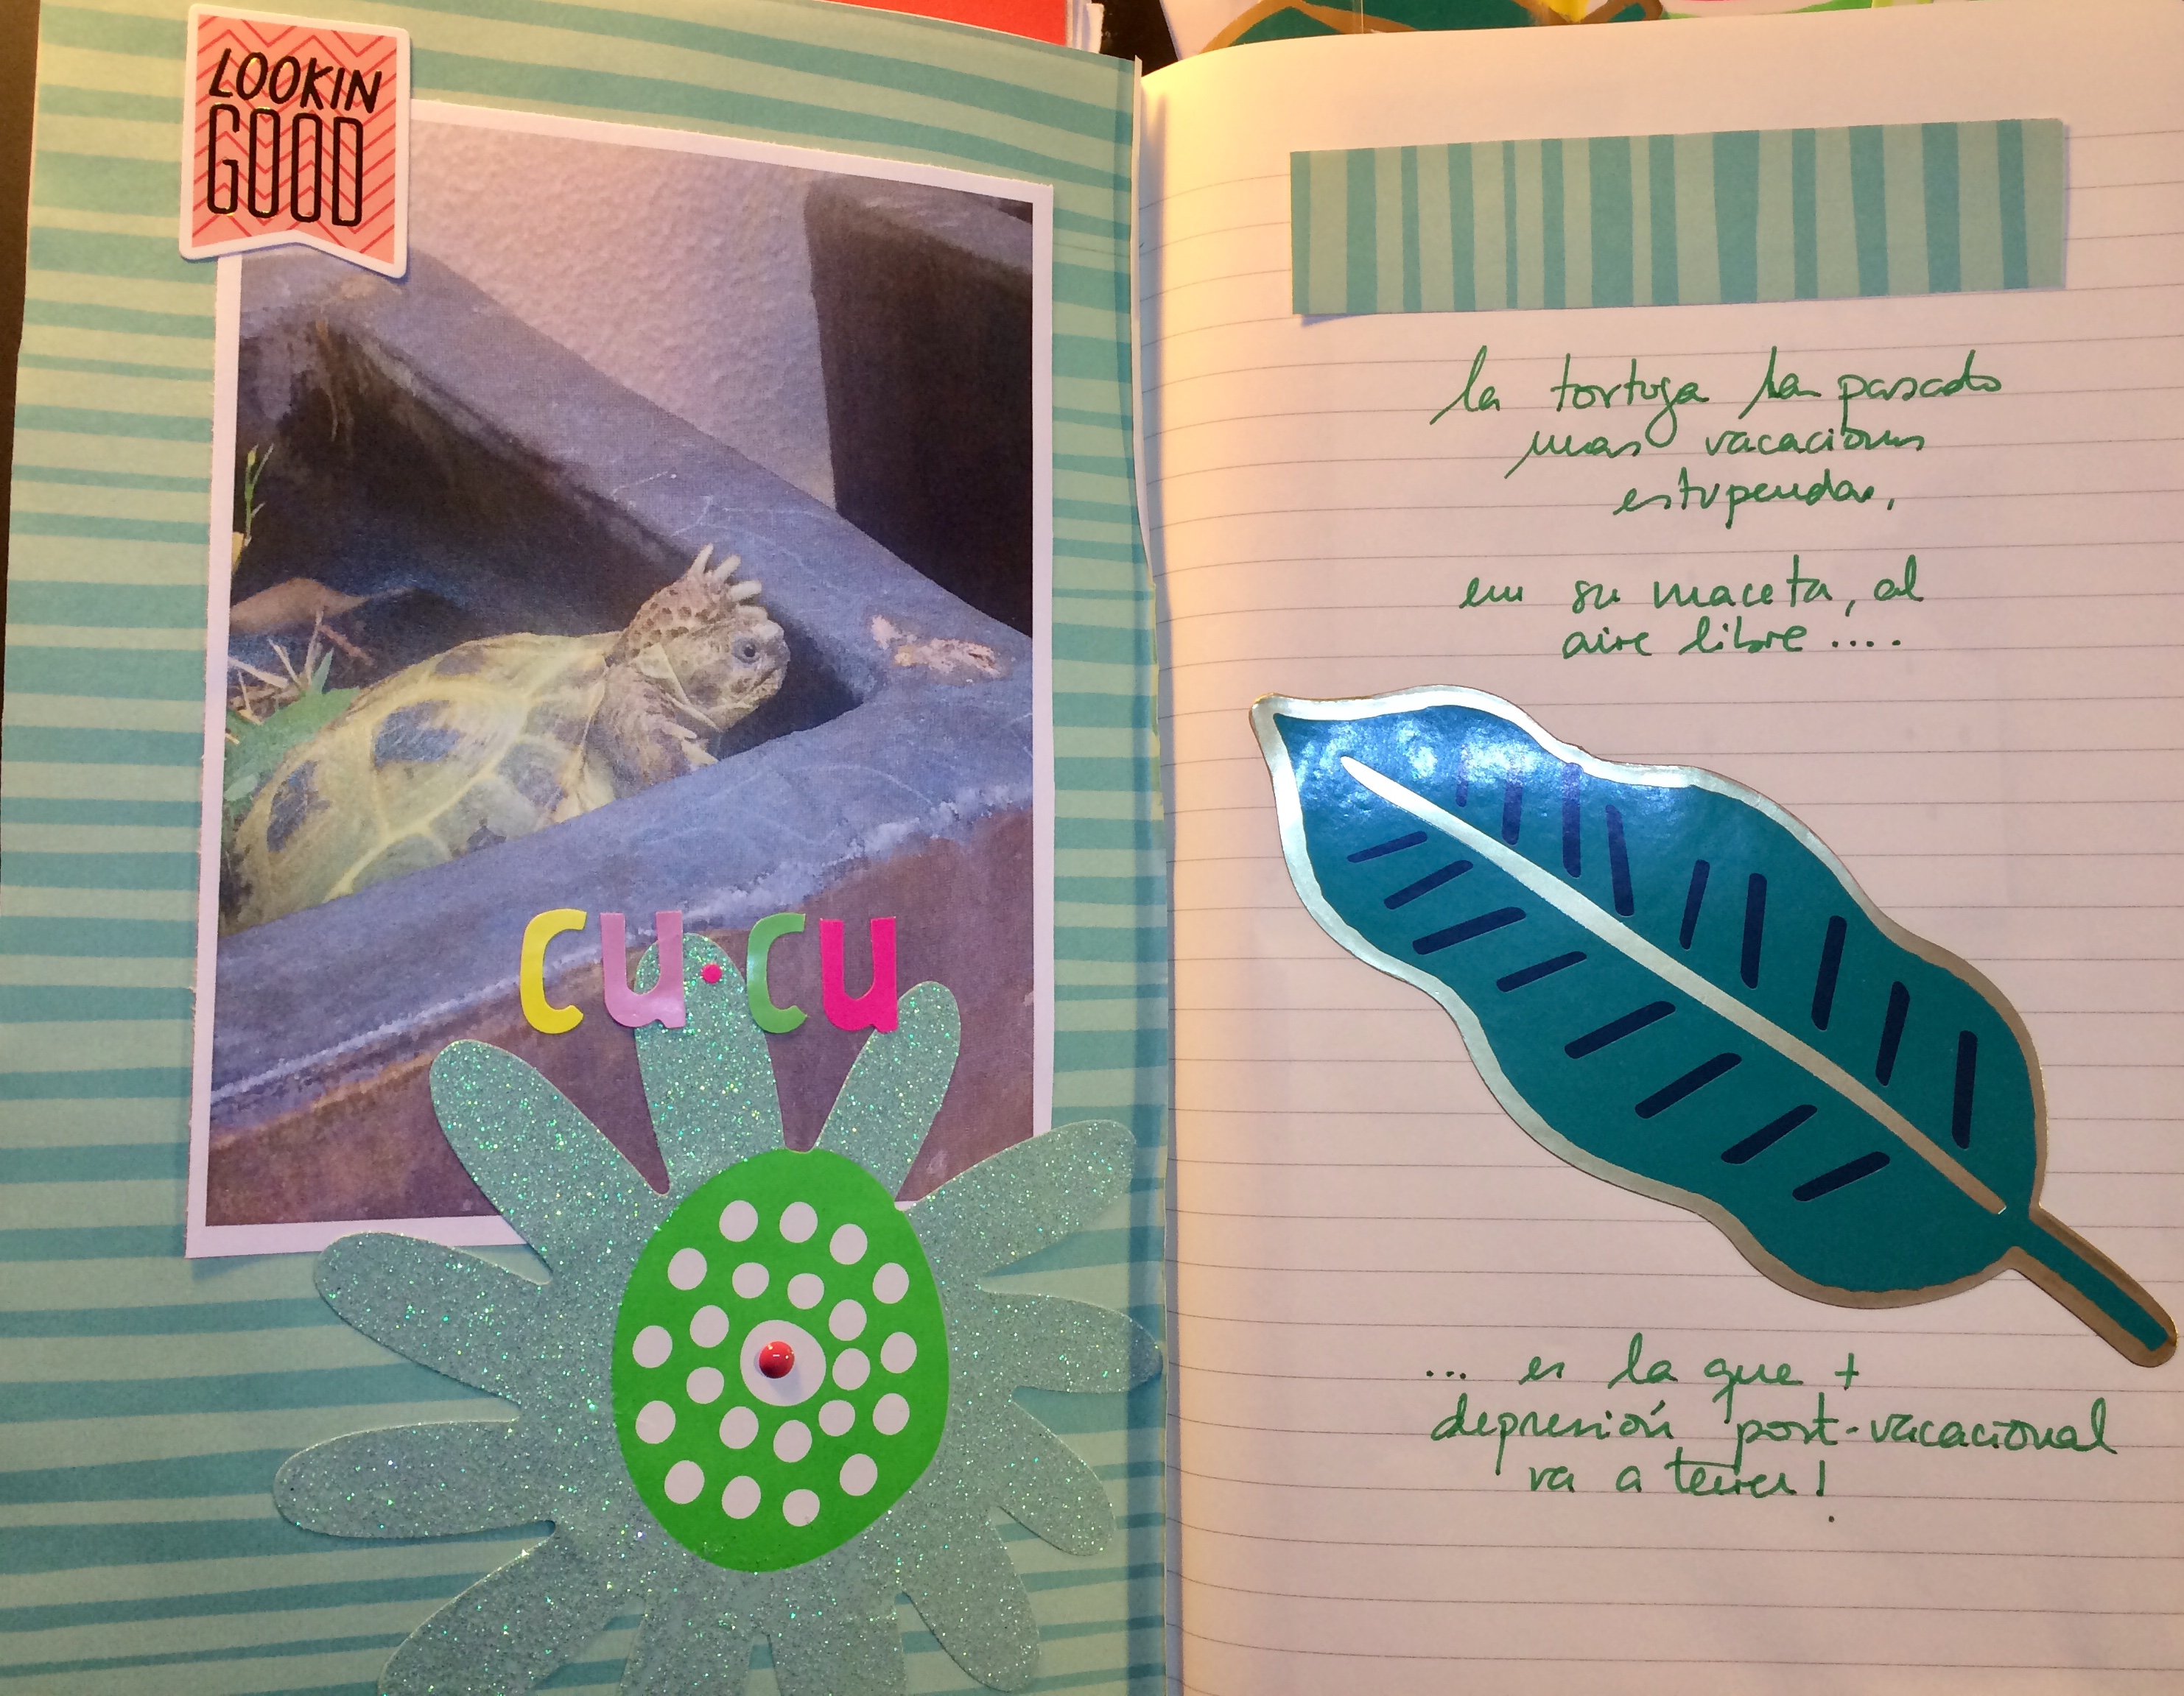 LOOKIN
GOOD
cu·cu
la tortuga ha pasado
unas vacaciones
estupendas,
en su maceta, al
aire libre ....
... es la que +
depresión post-vacacional
va a tener!